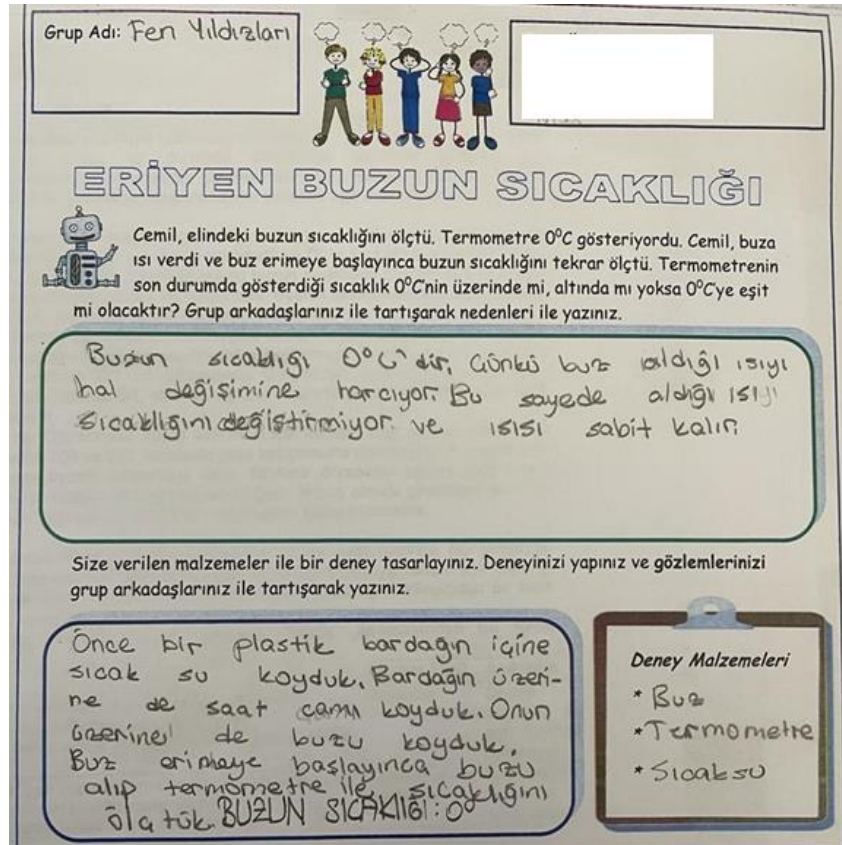 Grup Adı: Fen Yıldızları
ERİYEN BUZUN SICAKLIĞI
Cemil, elindeki buzun sıcaklığını ölçtü. Termometre 0⁰C gösteriyordu. Cemil, buza
ısı verdi ve buz erimeye başlayınca buzun sıcaklığını tekrar ölçtü. Termometrenin
son durumda gösterdiği sıcaklık 0⁰C'nin üzerinde mi, altında mı yoksa 0⁰C'ye eşit
mi olacaktır? Grup arkadaşlarınız ile tartışarak nedenleri ile yazınız.
Buzun sıcaklığı 0°C'dir, Çünkü buz aldığı ısıyı
hal değişimine harcıyor. Bu sayede aldığı ısıyı
sıcaklığını değiştirmiyor. ve ısısı sabit kalır.
Size verilen malzemeler ile bir deney tasarlayınız. Deneyinizi yapınız ve gözlemlerinizi
grup arkadaşlarınız ile tartışarak yazınız.
Önce bir plastik bardağın içine
sıcak su koyduk. Bardağın üzeri-
ne de saat camı koyduk. Onun
üzerine de buzu koyduk.
Buz erimeye başlayınca buzu
alıp termometre ile sıcaklığını
ölçtük. BUZUN SICAKlIĞI: 0°
Deney Malzemeleri
* Buz
* Termometre
* Sıcak su